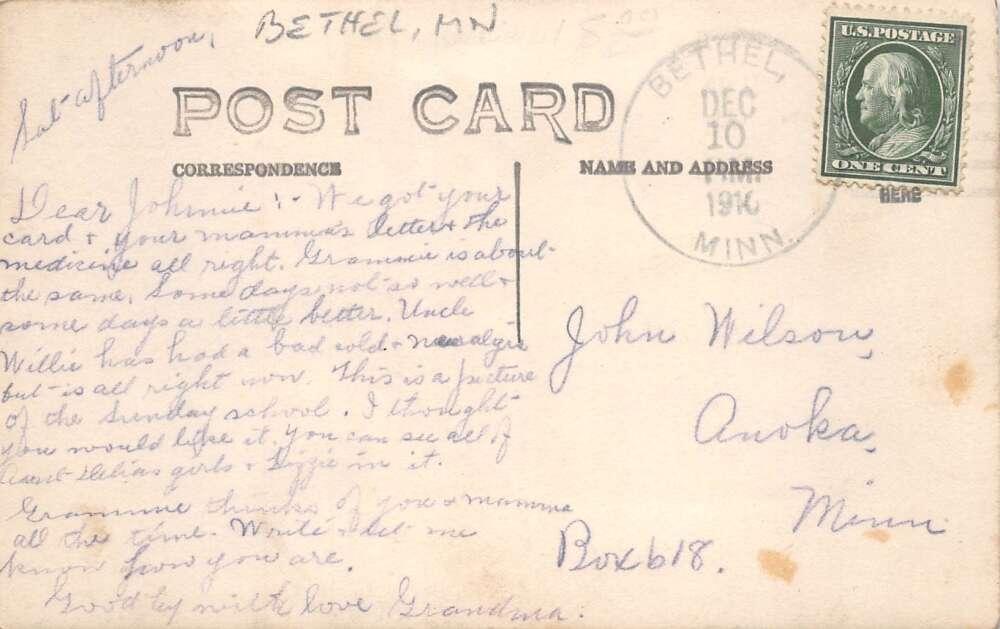 BETHEL, MN
15.00
Sat afternoon,
POST CARD
CORRESPONDENCE
NAME AND ADDRESS
BETHEL,
DEC
10
P.M.
1910
MINN.
U.S. POSTAGE
ONE CENT
HERE
Dear Johnnie :- We got your
card + your mamma's letter + the
medicine all right. Grammie is about
the same. Some days not so well +
some days a little better. Uncle
Willie has had a bad cold + neuralgia
but is all right now. This is a picture
of the Sunday school. I thought
you would like it. You can see all of
Aunt Delias girls + Lizzie in it.
Grammie thinks of you + mamma
all the time. Write + let me
know how you are.
Good by with love Grandma.
John Wilson,
Anoka,
Minn.
Box 618.